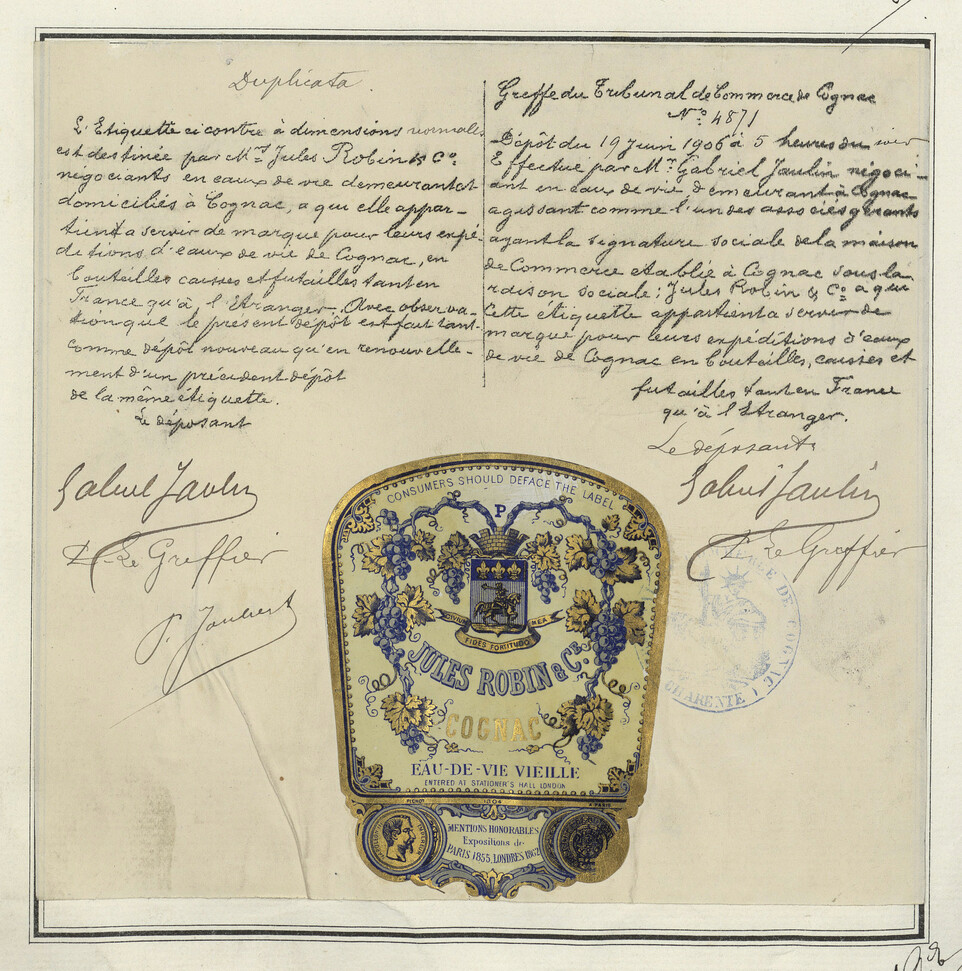 Duplicata.
L'Etiquette ci contre à dimensions normales
est destinée par Mrs Jules Robin & Co.
négociants en eaux de vie demeurant et
domiciliés à Cognac, a qui elle appar-
tient a servir de marque pour leurs expé-
ditions d'eaux de vie de Cognac, en
bouteilles caisses et futailles tant en
France qu'à l'Etranger. Avec observa-
tion que le présent dépôt est fait tant
comme dépôt nouveau qu'en renouvelle-
ment d'un précédent dépôt
de la même étiquette.
Le déposant
Gabriel Jaulin
P. Le Greffier
P. Joubert
Greffe du Tribunal de Commerce de Cognac
No. 4871
Dépôt du 19 Juin 1906 à 5 heures du soir
Effectué par Mr. Gabriel Jaulin négoci-
ant en eaux de vie demeurant à Cognac
agissant comme l'un des associés gérants
ayant la signature sociale de la maison
de Commerce établie à Cognac sous la
raison sociale: Jules Robin & Co. a qui
cette étiquette appartient a servir de
marque pour leurs expéditions d'eaux
de vie de Cognac en bouteilles, caisses et
futailles tant en France
qu'à l'Etranger.
Le déposant
Gabriel Jaulin
P. Le Greffier
DE COGNAC
CHARENTE
CONSUMERS SHOULD DEFACE THE LABEL
P
FIDES FORTITUDO
JULES ROBIN & CIE
COGNAC
EAU-DE-VIE VIEILLE
ENTERED AT STATIONER'S HALL LONDON
MENTIONS HONORABLES
Expositions de
PARIS 1855, LONDRES 1862